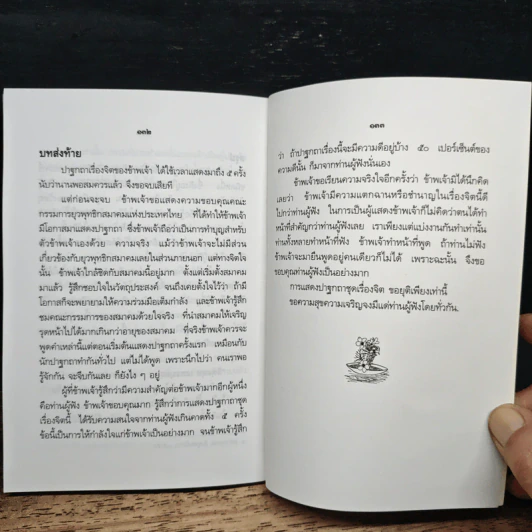 ๑๓๒
บทส่งท้าย
ปาฐกถาเรื่องจิตของข้าพเจ้า ได้ใช้เวลาแสดงมาถึง ๕ ครั้ง
นับว่านานพอสมควรแล้ว จึงขอจบเสียที
แต่ก่อนจะจบ ข้าพเจ้าขอแสดงความขอบคุณคณะ
กรรมการยุวพุทธิกสมาคมแห่งประเทศไทย ที่ได้ทำให้ข้าพเจ้า
มีโอกาสมาแสดงปาฐกถา ซึ่งข้าพเจ้าถือว่าเป็นการทำบุญสำหรับ
ตัวข้าพเจ้าเองด้วย ความจริง แม้ว่าข้าพเจ้าจะไม่มีส่วน
เกี่ยวข้องกับยุวพุทธิกสมาคมเลยในส่วนภายนอก แต่ทางจิตใจ
นั้น ข้าพเจ้าใกล้ชิดกับสมาคมนี้อยู่มาก ตั้งแต่เริ่มตั้งสมาคม
มาแล้ว รู้สึกชอบใจในวัตถุประสงค์ จนถึงเคยตั้งใจไว้ว่า ถ้ามี
โอกาสก็จะพยายามให้ความร่วมมือเต็มกำลัง และข้าพเจ้ารู้สึก
ชมคณะกรรมการของสมาคมด้วยใจจริง ที่นำสมาคมให้เจริญ
รุดหน้าไปได้มากเกินกว่าอายุของสมาคม ที่จริงข้าพเจ้าควรจะ
พูดคำเหล่านี้แต่ตอนเริ่มต้นแสดงปาฐกถาครั้งแรก เหมือนกับ
นักปาฐกถาทำกันทั่วไป แต่ไม่ได้พูด เพราะนึกไปว่า คนเราพอ
รู้จักกัน จะจีบกันเลย ก็ยังไง ๆ อยู่
ผู้ที่ข้าพเจ้ารู้สึกว่ามีความสำคัญต่อข้าพเจ้ามากอีกผู้หนึ่ง
คือท่านผู้ฟัง ข้าพเจ้าขอบคุณมาก รู้สึกว่าการแสดงปาฐกถาชุด
เรื่องจิตนี้ ได้รับความสนใจจากท่านผู้ฟังเกินคาดทั้ง ๕ ครั้ง
ข้อนี้เป็นการให้กำลังใจแก่ข้าพเจ้าเป็นอย่างมาก จนข้าพเจ้ารู้สึก
๑๓๓
ว่า ถ้าปาฐกถาเรื่องนี้จะมีความดีอยู่บ้าง ๕๐ เปอร์เซ็นต์ของ
ความดีนั้น ก็มาจากท่านผู้ฟังนั่นเอง
ข้าพเจ้าขอเรียนความจริงใจอีกครั้งว่า ข้าพเจ้ามิได้นึกคิด
เลยว่า ข้าพเจ้ามีความแตกฉานหรือชำนาญในเรื่องจิตนี้ดี
ไปกว่าท่านผู้ฟัง ในการเป็นผู้แสดงข้าพเจ้าก็ไม่คิดว่าตนได้ทำ
หน้าที่สำคัญกว่าท่านผู้ฟังเลย เราเพียงแต่แบ่งงานกันทำเท่านั้น
ท่านทั้งหลายทำหน้าที่ฟัง ข้าพเจ้าทำหน้าที่พูด ถ้าท่านไม่ฟัง
ข้าพเจ้าจะมายืนพูดอยู่คนเดียวก็ไม่ได้ เพราะฉะนั้น จึงขอ
ขอบคุณท่านผู้ฟังเป็นอย่างมาก
การแสดงปาฐกถาชุดเรื่องจิต ขอยุติเพียงเท่านี้
ขอความสุขความเจริญจงมีแด่ท่านผู้ฟังโดยทั่วกัน.